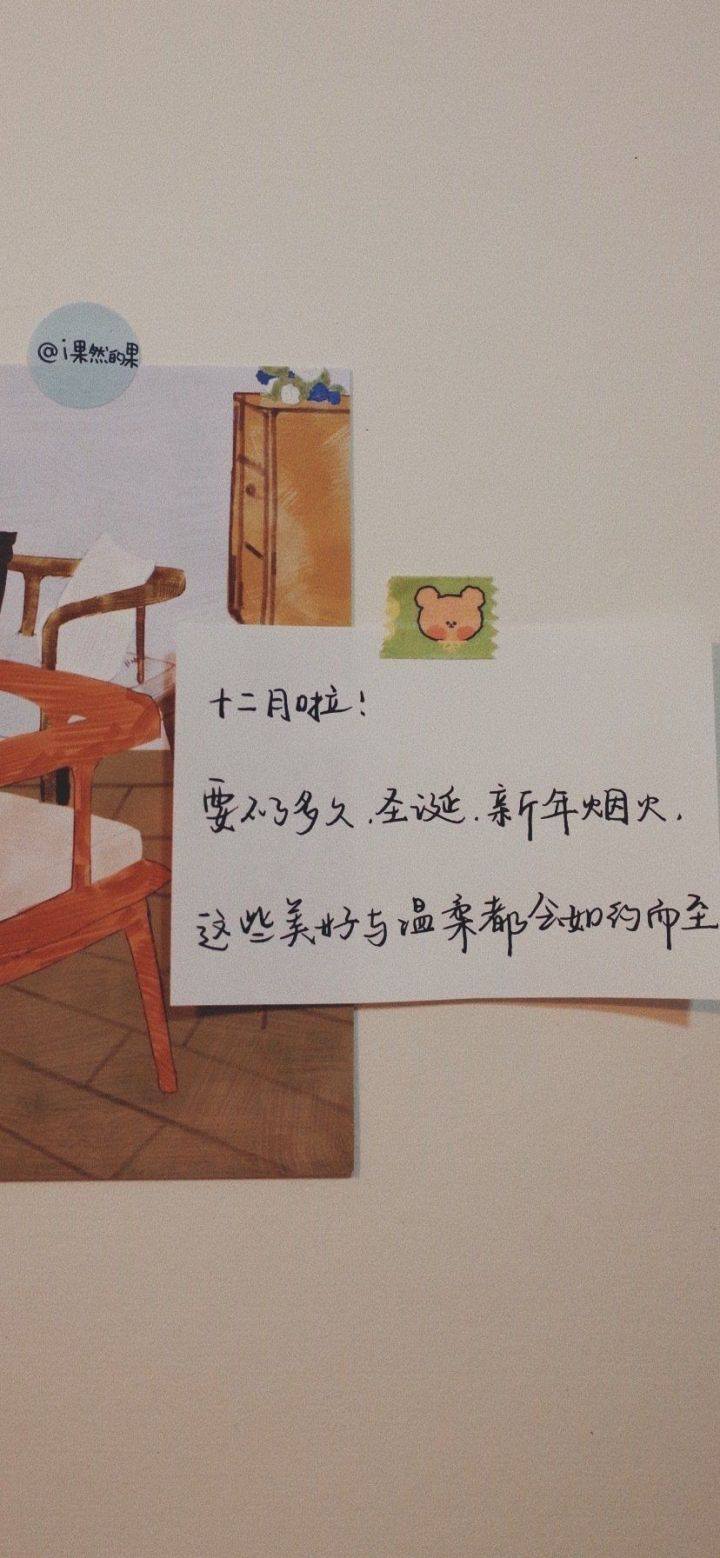 @i果然的果
十二月啦！
要不了多久.圣诞.新年烟火.
这些美好与温柔都会如约而至